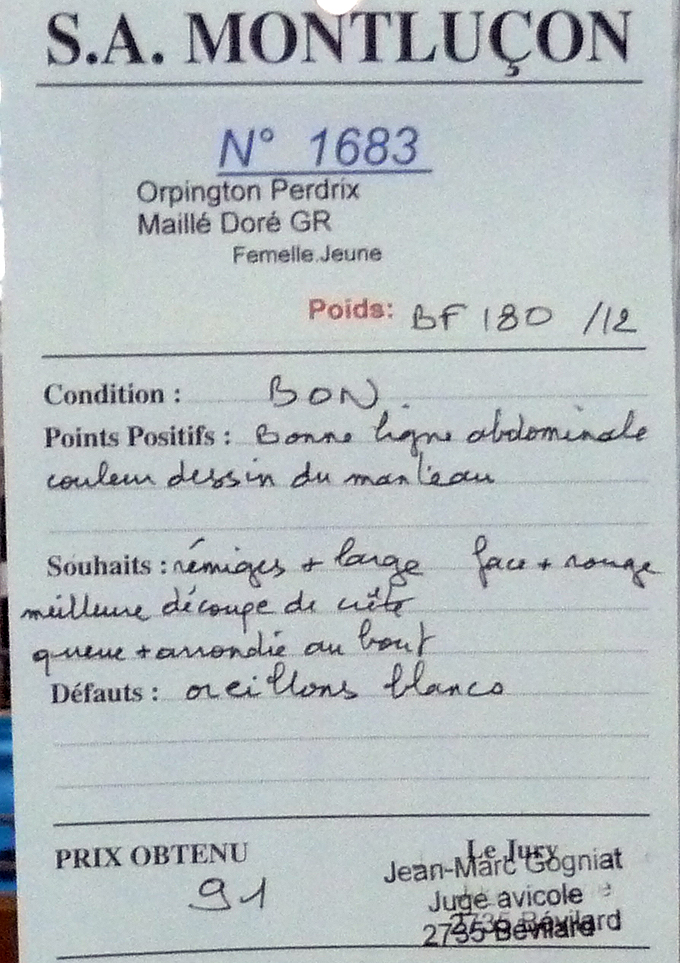 S.A. MONTLUÇON
N° 1683
Orpington Perdrix
Maillé Doré GR
Femelle.Jeune
Poids: BF 180 /12
Condition : BON.
Points Positifs : Bonne ligne abdominale
couleur dessin du manteau
Souhaits : rémiges + large face + rouge
meilleure découpe de crête
queue + arrondie au bout
Défauts : oreillons blancs
PRIX OBTENU
91
Le Jury
Jean-Marc Gogniat
Juge avicole
2735 Bévilard